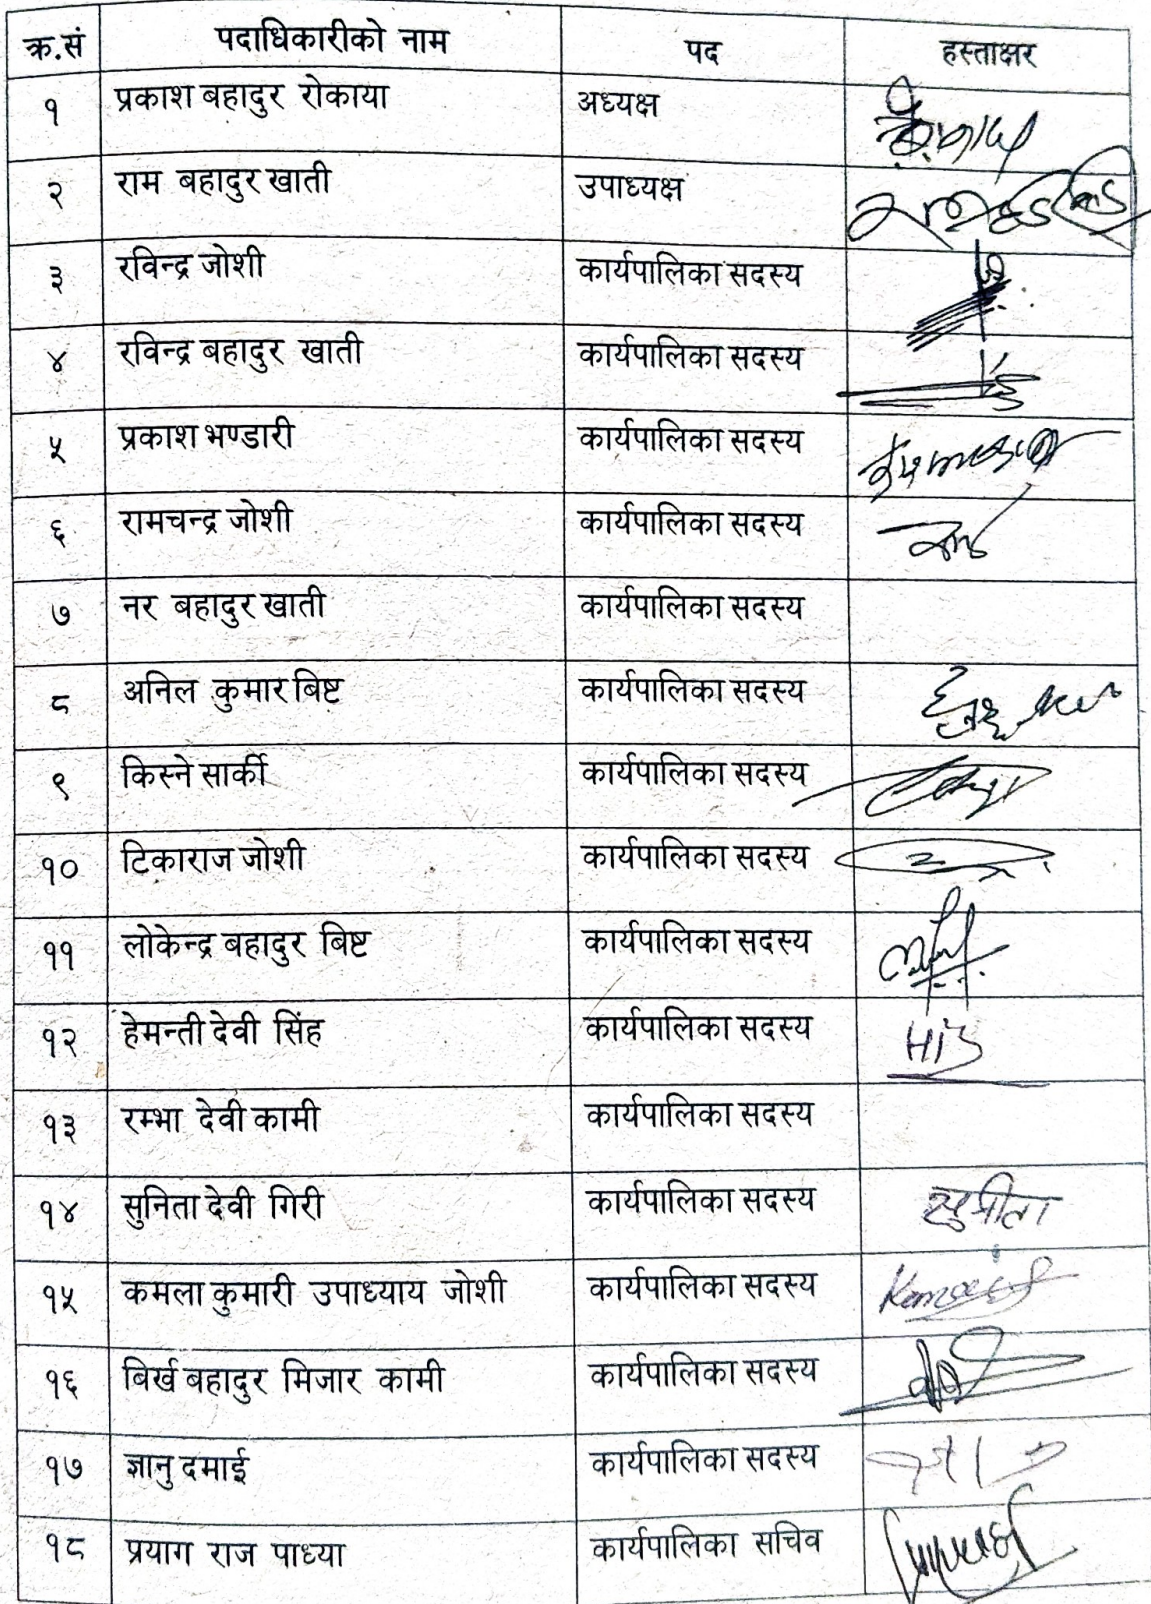 क्र.सं पदाधिकारीको नाम पद हस्ताक्षर
१ प्रकाश बहादुर रोकाया अध्यक्ष
२ राम बहादुर खाती उपाध्यक्ष
३ रविन्द्र जोशी कार्यपालिका सदस्य
४ रविन्द्र बहादुर खाती कार्यपालिका सदस्य
५ प्रकाश भण्डारी कार्यपालिका सदस्य
६ रामचन्द्र जोशी कार्यपालिका सदस्य
७ नर बहादुर खाती कार्यपालिका सदस्य
८ अनिल कुमार बिष्ट कार्यपालिका सदस्य
९ किस्ने सार्की कार्यपालिका सदस्य
१० टिकाराज जोशी कार्यपालिका सदस्य
११ लोकेन्द्र बहादुर बिष्ट कार्यपालिका सदस्य
१२ हेमन्ती देवी सिंह कार्यपालिका सदस्य
१३ रम्भा देवी कामी कार्यपालिका सदस्य
१४ सुनिता देवी गिरी कार्यपालिका सदस्य
१५ कमला कुमारी उपाध्याय जोशी कार्यपालिका सदस्य
१६ बिर्ख बहादुर मिजार कामी कार्यपालिका सदस्य
१७ ज्ञानु दमाई कार्यपालिका सदस्य
१८ प्रयाग राज पाध्या कार्यपालिका सचिव